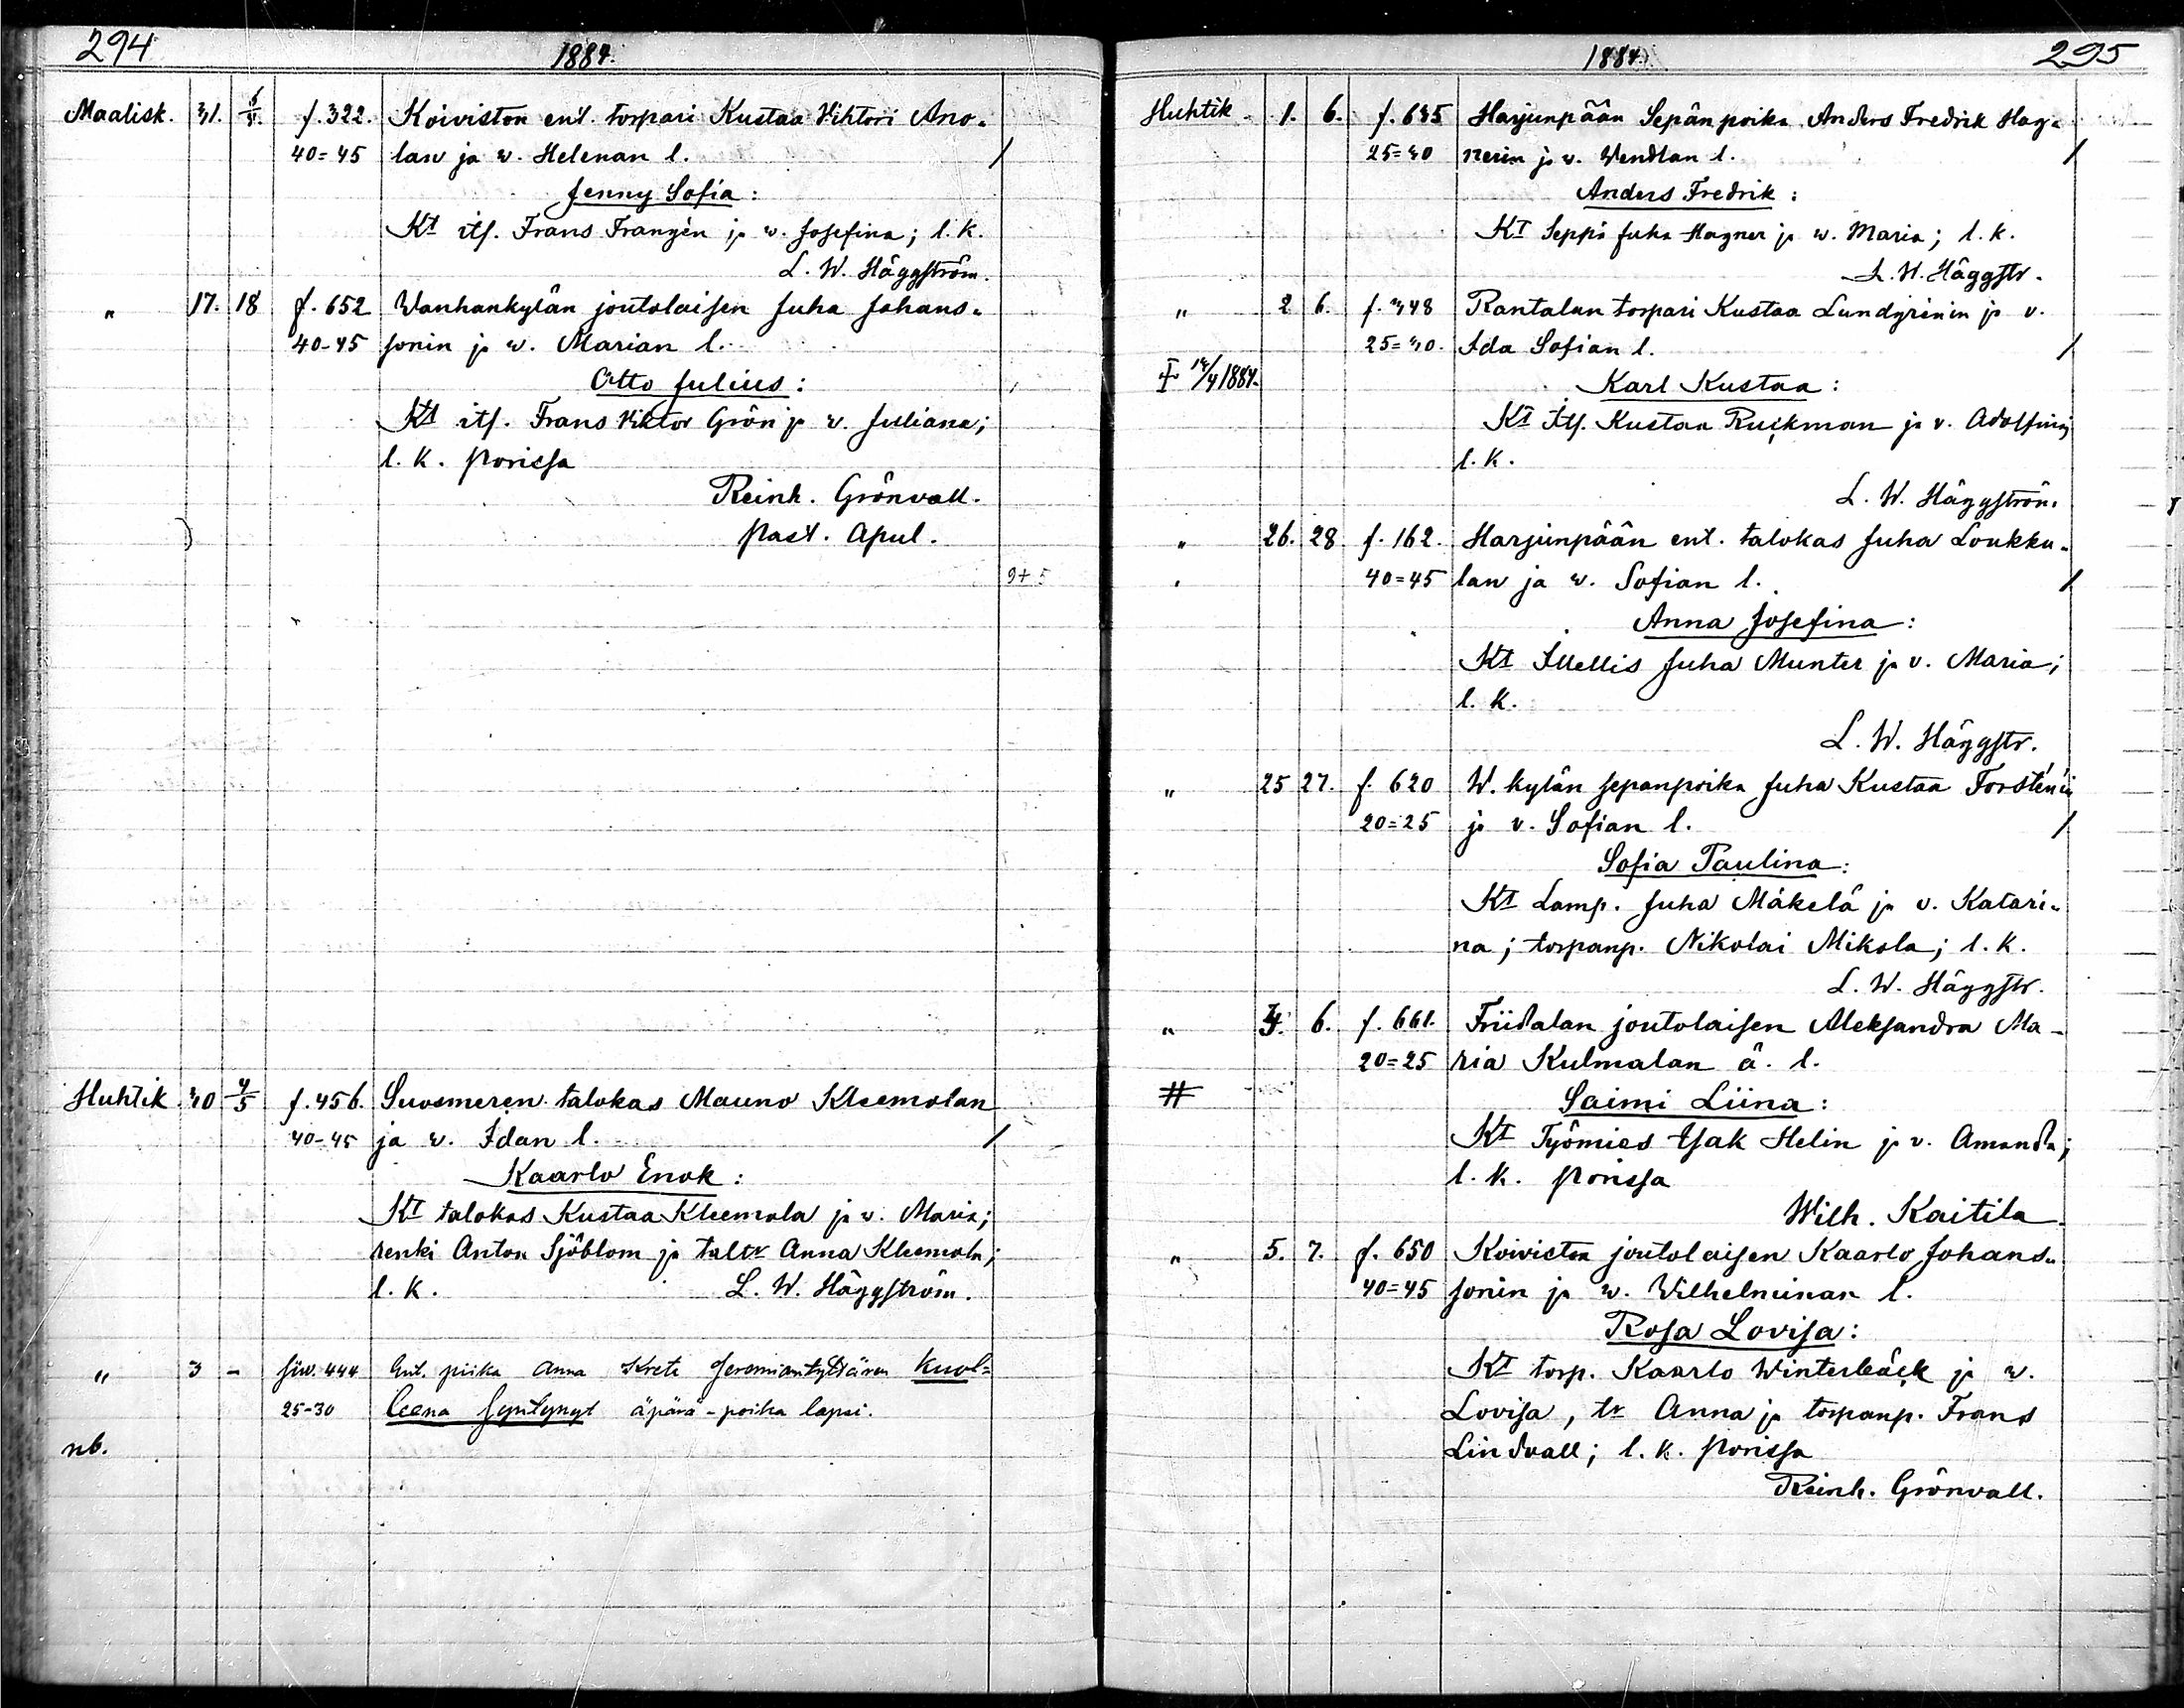 294
1884.
Maalisk. 31. 6/4. f. 322. Koiviston ent. torpari Kustaa Vihtori Ano-
40=45 lan ja w. Helenan l. /
Jenny Sofia:
Kt itf. Frans Frangén ja w. Josefina; l. k.
L. W. Häggström.
" 17. 18 f. 652 Wanhankylän joutolaisen Juha Johans-
40-45 sonin ja w. Marian l.
Otto Julius:
Kt itf. Frans Viktor Grön ja w. Julliana;
l. k. Porissa
Reinh. Grönvall.
Past. Apul.
9+5
Huhtik. 30 4/5 f. 456. Suosmeren talokas Mauno Kleemolan
40-45 ja w. Idan l. /
Kaarlo Enok:
Kt talokas Kustaa Kleemola ja w. Maria;
renki Anton Sjöblom ja taltr Anna Kleemola;
l. k. L. W. Häggström.
" 3 - siw. 444 Ent. piika Anna Kreta Jeremiantyttären kuol-
25-30 leena syntynyt äpärä-poika lapsi.
nb.
1884.
295
Huhtik. 1. 6. f. 635 Harjunpään Sepänpoika Anders Fredrik Hag-
25=30 nerin ja w. Wendlan l. /
Anders Fredrik:
Kt Seppä Juha Hagner ja w. Maria; l. k.
L. W. Häggstr.
" 2 6. f. 348 Rantalan torpari Kustaa Lundgrénin ja v.
25=30. Ida Sofian l. /
14/4 1884. Karl Kustaa:
Kt Itf. Kustaa Ruckman ja v. Adolfina;
l. k.
L. W. Häggström.
" 26. 28 f. 162. Harjunpään ent. talokas Juha Loukku-
40=45 lan ja w. Sofian l. /
Anna Josefina:
Kt Itellis Juha Munter ja v. Maria;
l. k.
L. W. Häggstr.
" 25 27. f. 620 W. kylän sepanpoika Juha Kustaa Forsténin
20=25 ja v. Sofian l. /
Sofia Paulina:
Kt Lamp. Juha Mäkelä ja v. Katari-
na; torpanp. Nikolai Mikola; l. k.
L. W. Häggstr.
" 6. f. 661. Friidalan joutolaisen Aleksandra Ma-
20=25 ria Kulmalan ä. l.
# Saimi Liina:
Kt Työmies Isak Helin ja v. Amanda;
l. k. Porissa
Wilh. Kaitila.
" 5. 7. f. 650 Koiviston joutolaisen Kaarlo Johans-
40=45 sonin ja w. Wilhelminan l.
Rosa Lovisa:
Kt torp. Kaarlo Winterbäck ja w.
Lovisa, tr Anna ja torpanp. Frans
Lindvall; l. k. Porissa
Reinh. Grönvall.